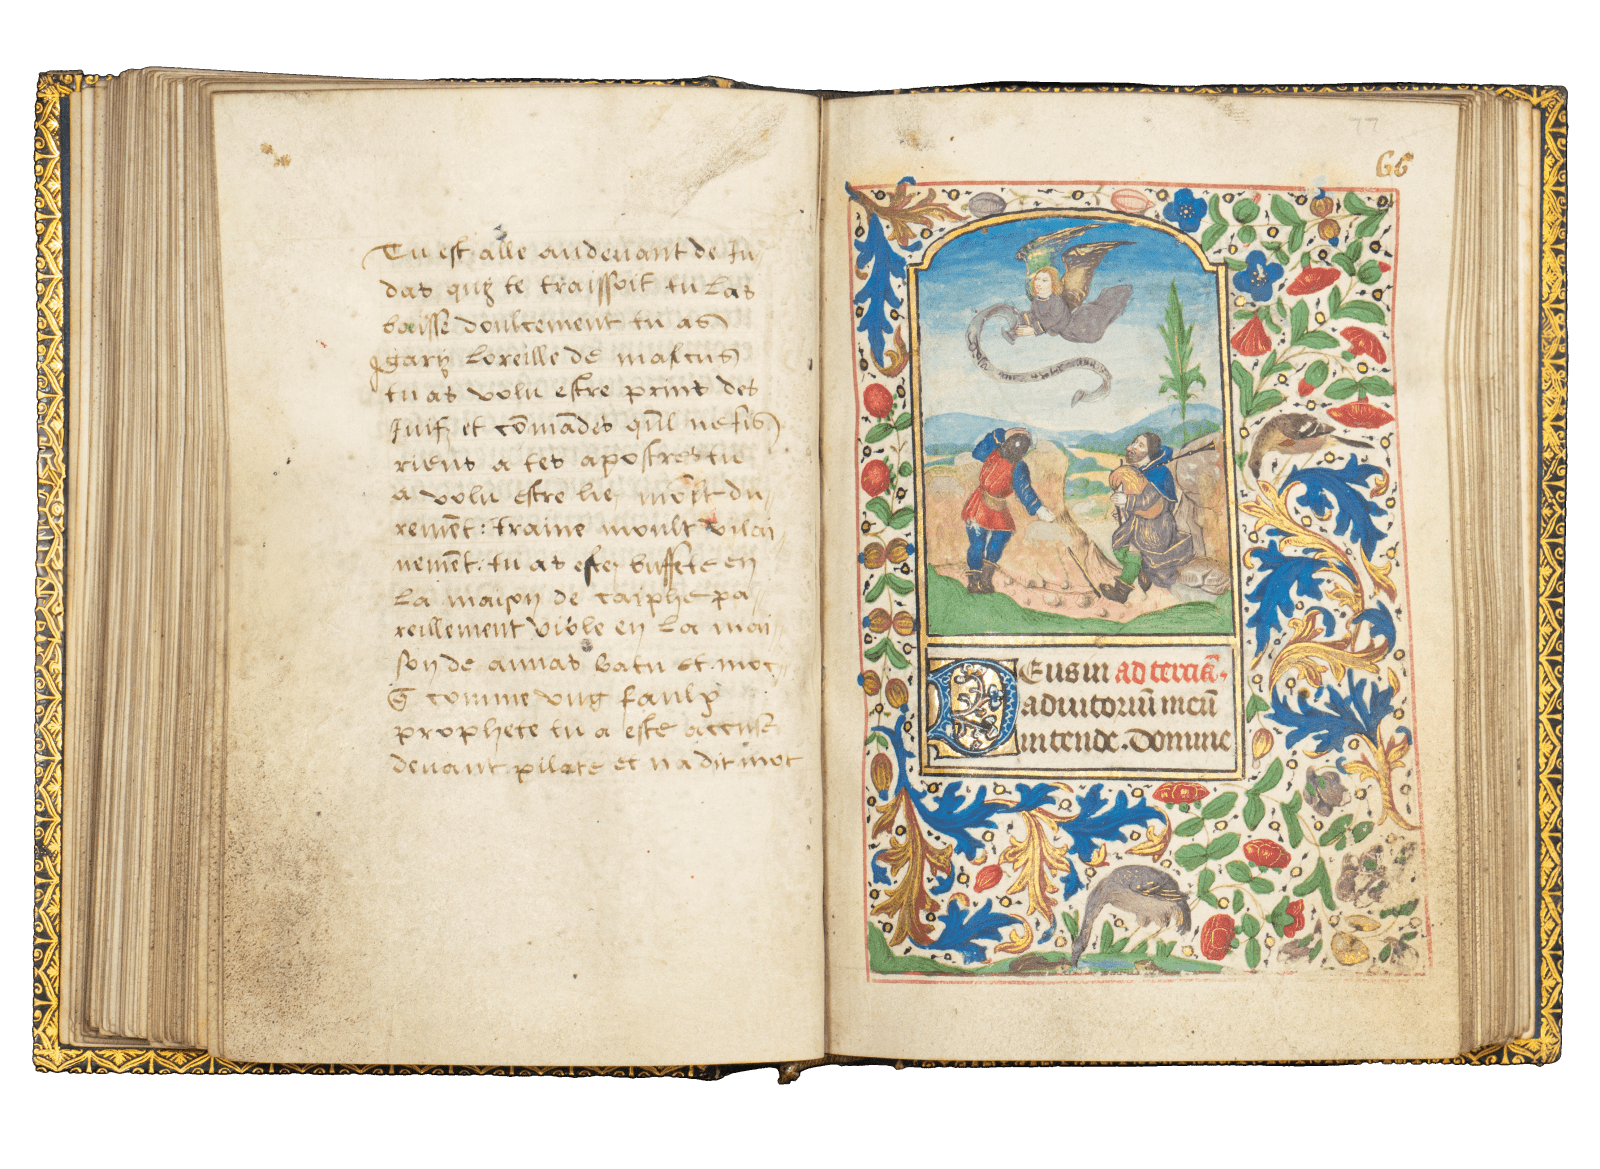 Tu est alle audeuant de Ju-
das quy te traissoit tu las
baisse doulcement tu as
gary loreille de malcus
tu as volu estre prins des
Juifz et cōmādes qūl ne fis
riens a tes apostres tu
a volu estre lie moult du-
remēt: traine moult vilai-
nemēt. tu as este buffete en
La maison de caiphe pa-
reillement viole en La mai-
son de annas batu et moc-
comme vng faulx
prophete tu a este accuse
deuant pilate et na dit mot
77
66
DEus in ad terciā.
adiutoriū meū
intende. Domine